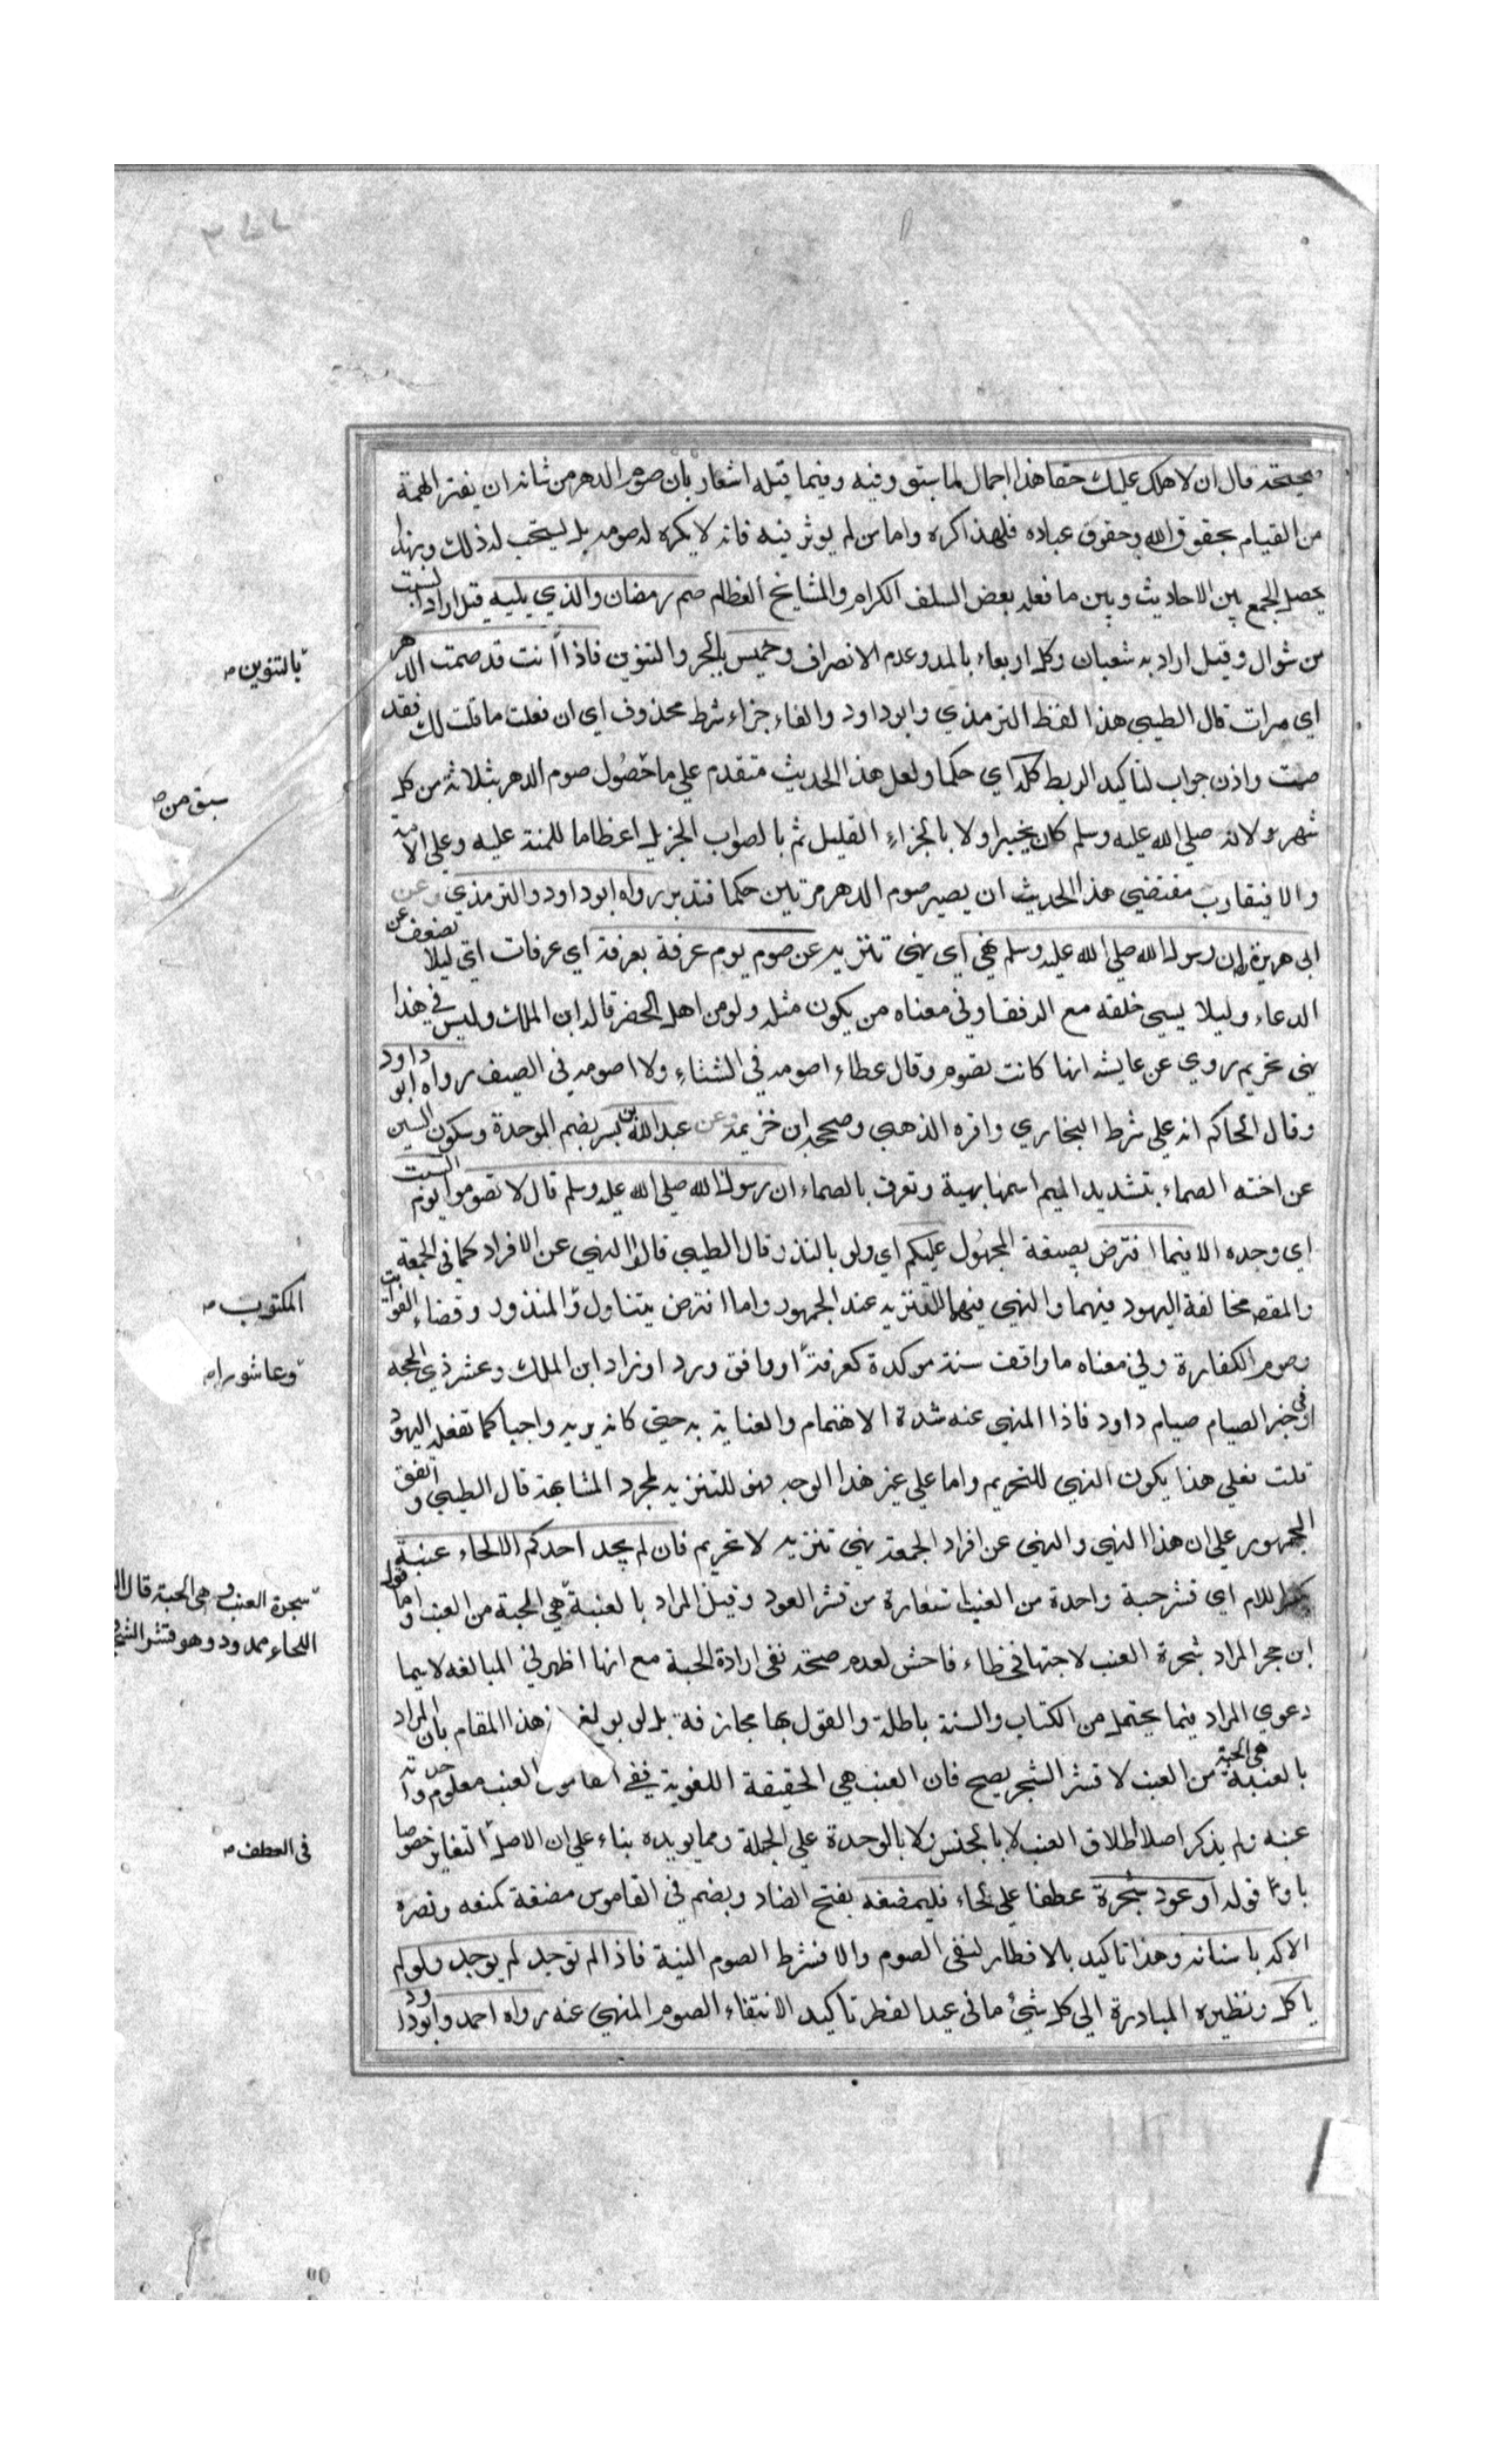 قال ان لاهلك عليك حقا هذا اجمال لما سبق وفيه وفيما قبله اشعار بان صوم الدهر من شانه ان يفتر الهمة
من القيام بحقوق الله وحقوق عباده فلهذا كره واما من لم يوثر فيه فانه لا يكره له صومه بل يستحب له ذلك وبهذا
يحصل الجمع بين الاحاديث وبين ما فعله بعض السلف الكرام والمشايخ العظام صم رمضان والذي يليه قيل اراد الست
من شوال وقيل اراد به شعبان وكل اربعاء بالمد وعدم الانصراف وخميس بالجر والتنوين فاذا انت قد صمت الدهر
بالتنوين
اي مرات قال الطيبي هذا لفظ الترمذي وابو داود والفاء جزاء شرط محذوف اي ان فعلت ما قلت لك فقد
صمت واذن جواب لتاكيد الربط كله اي حكما ولعل هذا الحديث متقدم علي ما حصول صوم الدهر بثلاثة من كل
سبق من
شهر ولانه صلي الله عليه وسلم كان يخبر اولا بالجزاء القليل ثم بالصواب الجزيل اعظاما للمنة عليه وعلي الامة
والا فيتقارب مقتضي هذا الحديث ان يصير صوم الدهر مرتين حكما فتدبر رواه ابو داود والترمذي وعن
ابي هريرة ان رسول الله صلي الله عليه وسلم نهي اي نهي تنزيه عن صوم يوم عرفة بعرفة اي عرفات اي ليلا يضعف عن
الدعاء وليلا يسي خلقه مع الرفقا وفي معناه من يكون مثله ولو من اهل الحضر قاله ابن الملك وليس في هذا
نهي تحريم روي عن عايشة انها كانت تصوم وقال عطاء اصومه في الشتاء ولا اصومه في الصيف رواه ابو داود
وقال الحاكم انه علي شرط البخاري واقره الذهبي وصححه ابن خزيمة وعن عبد الله بن بسر بضم الموحدة وسكون السين
عن اخته الصماء بتشديد الميم اسمها بهية وتعرف بالصماء ان رسول الله صلي الله عليه وسلم قال لا تصوموا يوم السبت
اي وحده الا فيما افترض بصيغة المجهول عليكم اي ولو بالنذر قال الطيبي قالوا النهي عن الافراد كما في الجمعة
والمقص مخالفة اليهود فيهما والنهي فيهما للتنزيه عند الجمهور وما افترض يتناول والمنذور وقضاء الفوايت
المكتوب
وصوم الكفارة وفي معناه ما وافقت سنة موكدة كعرفة او وافق ورد او زاد ابن الملك وعشر ذي الحجه
وعاشورا
او في خير الصيام صيام داود فاذا المنهي عنه شدة الاهتمام والعناية به حتي كانه يريه واجبا كما تفعله اليهود
قلت فعلي هذا يكون النهي للتحريم واما علي غير هذا الوجه فهو للتنزيه لمجرد المشابهة قال الطيبي واتفق
الجمهور علي ان هذا النهي والنهي عن افراد الجمعة نهي تنزيه لا تحريم فان لم يجد احدكم الا لحاء عنبة
بكسر اللام اي قشر حبة واحدة من العنب استعارة من قشر العود وقيل المراد بالعنبة هي الحبة من العنب واما قول
شجرة العنب وهي الحبة قال
اللحاء ممدود وهو قشر الشجر
ابن حجر المراد شجرة العنب لا حبتها فخطاء فاحش لعدم صحة نفي ارادة الحبة مع انها اظهر في المبالغه لا سيما
دعوي المراد فيما يحتمل من الكتاب والسنة باطلة والقول بها مجازفة بل لو بولغ هذا المقام بان المراد
بالعنبة هي الحبة من العنب لا قشر الشجر يصح فان العنب هي الحقيقة اللغوية ففي القاموس العنب معلوم واحدته
عنبه ولم يذكر اصلا اطلاق العنب لا بالجنس ولا بالوحدة علي الجملة ومما يويده بناء علي ان الاصل التغاير خصوصا
في العطف
باو قوله او عود شجرة عطفا علي لحاء فليمضغه بفتح الضاد وبضم في القاموس مضغه كمنعه ونصره
لاكه باسنانه وهذا تاكيد بالافطار لنفي الصوم والا فشرط الصوم النية فاذا لم توجد لم يوجد ولو لم
ياكل ونظيره المبادرة الي كل شيء ما في عيد الفطر تاكيد الانتفاء الصوم المنهي عنه رواه احمد وابو داود